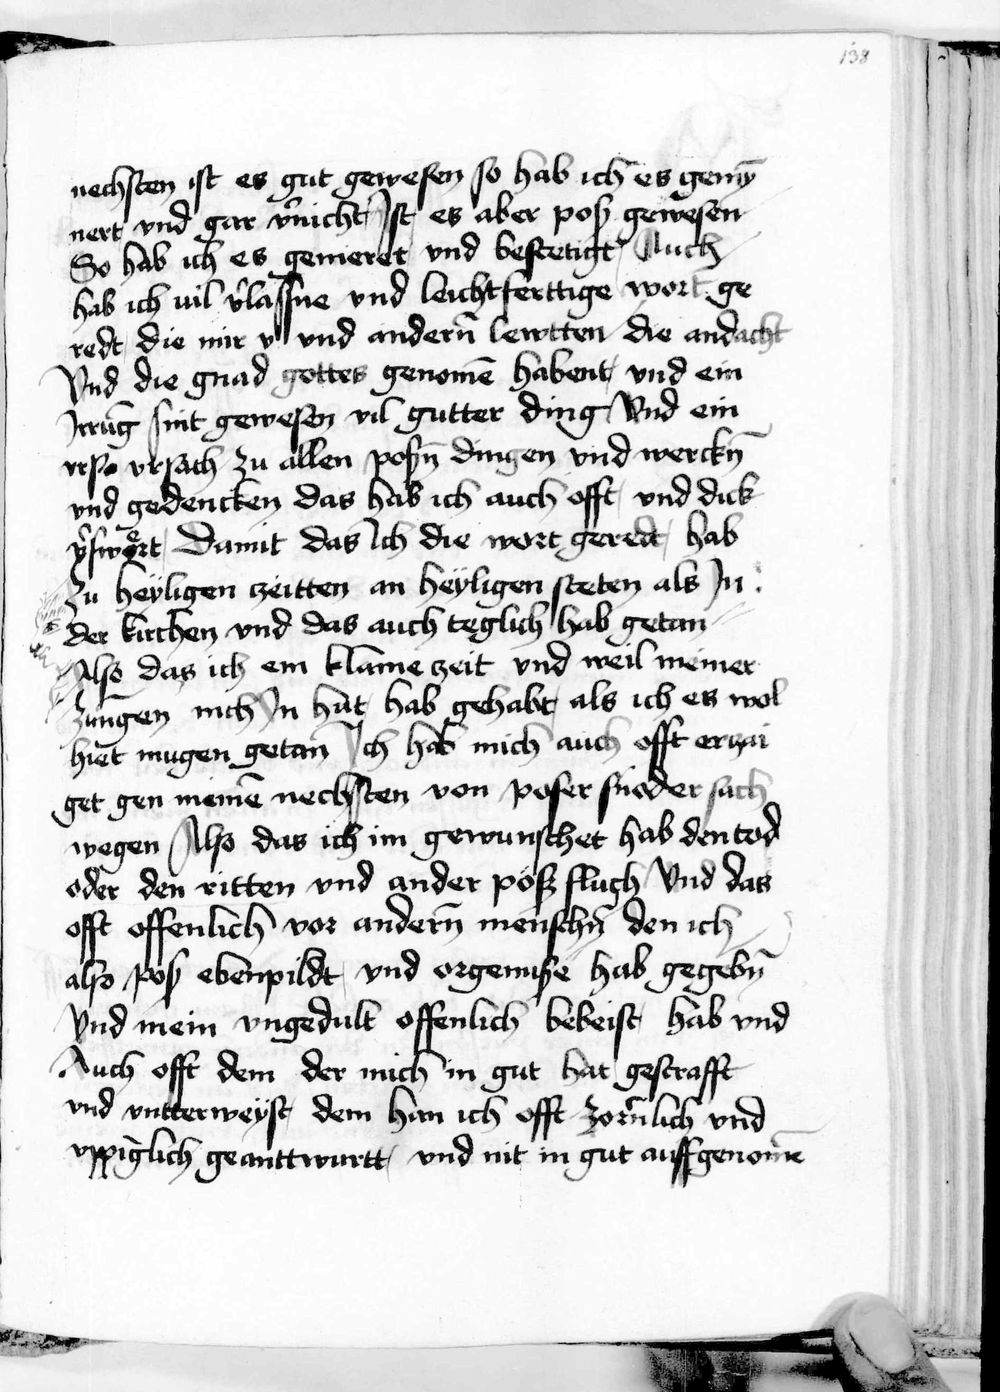 138
nechsten ist es gut gewesen so hab ich es gemÿ
nert vnd gar v̉nicht Ist es aber poß gewesen
So hab ich es gemeret vnd bestetigt Auch
hab ich uil v̉lassne vnd leichtferttige wort ge
redt die mir vnd andern̄ lewtten die andacht
Vnd die gnad gottes genomē habent vnd ein
Irrūg sint gewesen vil gutter ding Vnd ein
vrsach zu allen posn̄ dingen vnd werckn̄
vnd gedencken das hab ich auch offt vnd dick
v̉swört Damit das Ich die wort geredt hab
Zu heÿligen zeitten an heÿligen steten als In
der kirchen vnd das auch teglich hab getan
Also das ich ein klaine zeit vnd weil meiner
Zungen nich In hut hab gehabt als ich es wol
hiet mugen getan Ich hab mich auch offt erczai
get gen meinē nechsten von poser snoder sach
wegen Also das ich im gewunschet hab den tod
oder den ritten vnd ander pöß fluch Vnd das
offt offenlich vor andern̄ menschn̄ den ich
also poß ebenpildt vnd orgernuße hab gegebn̄
Vnd mein vngedult offenlich bebeist hab vnd
Auch offt dem der mich in gut hat gestrafft
vnd vntterweÿst dem han ich offt Zorn̄lich vnd
vppiglich geanttwurtt vnd nit in gut auffgenomē